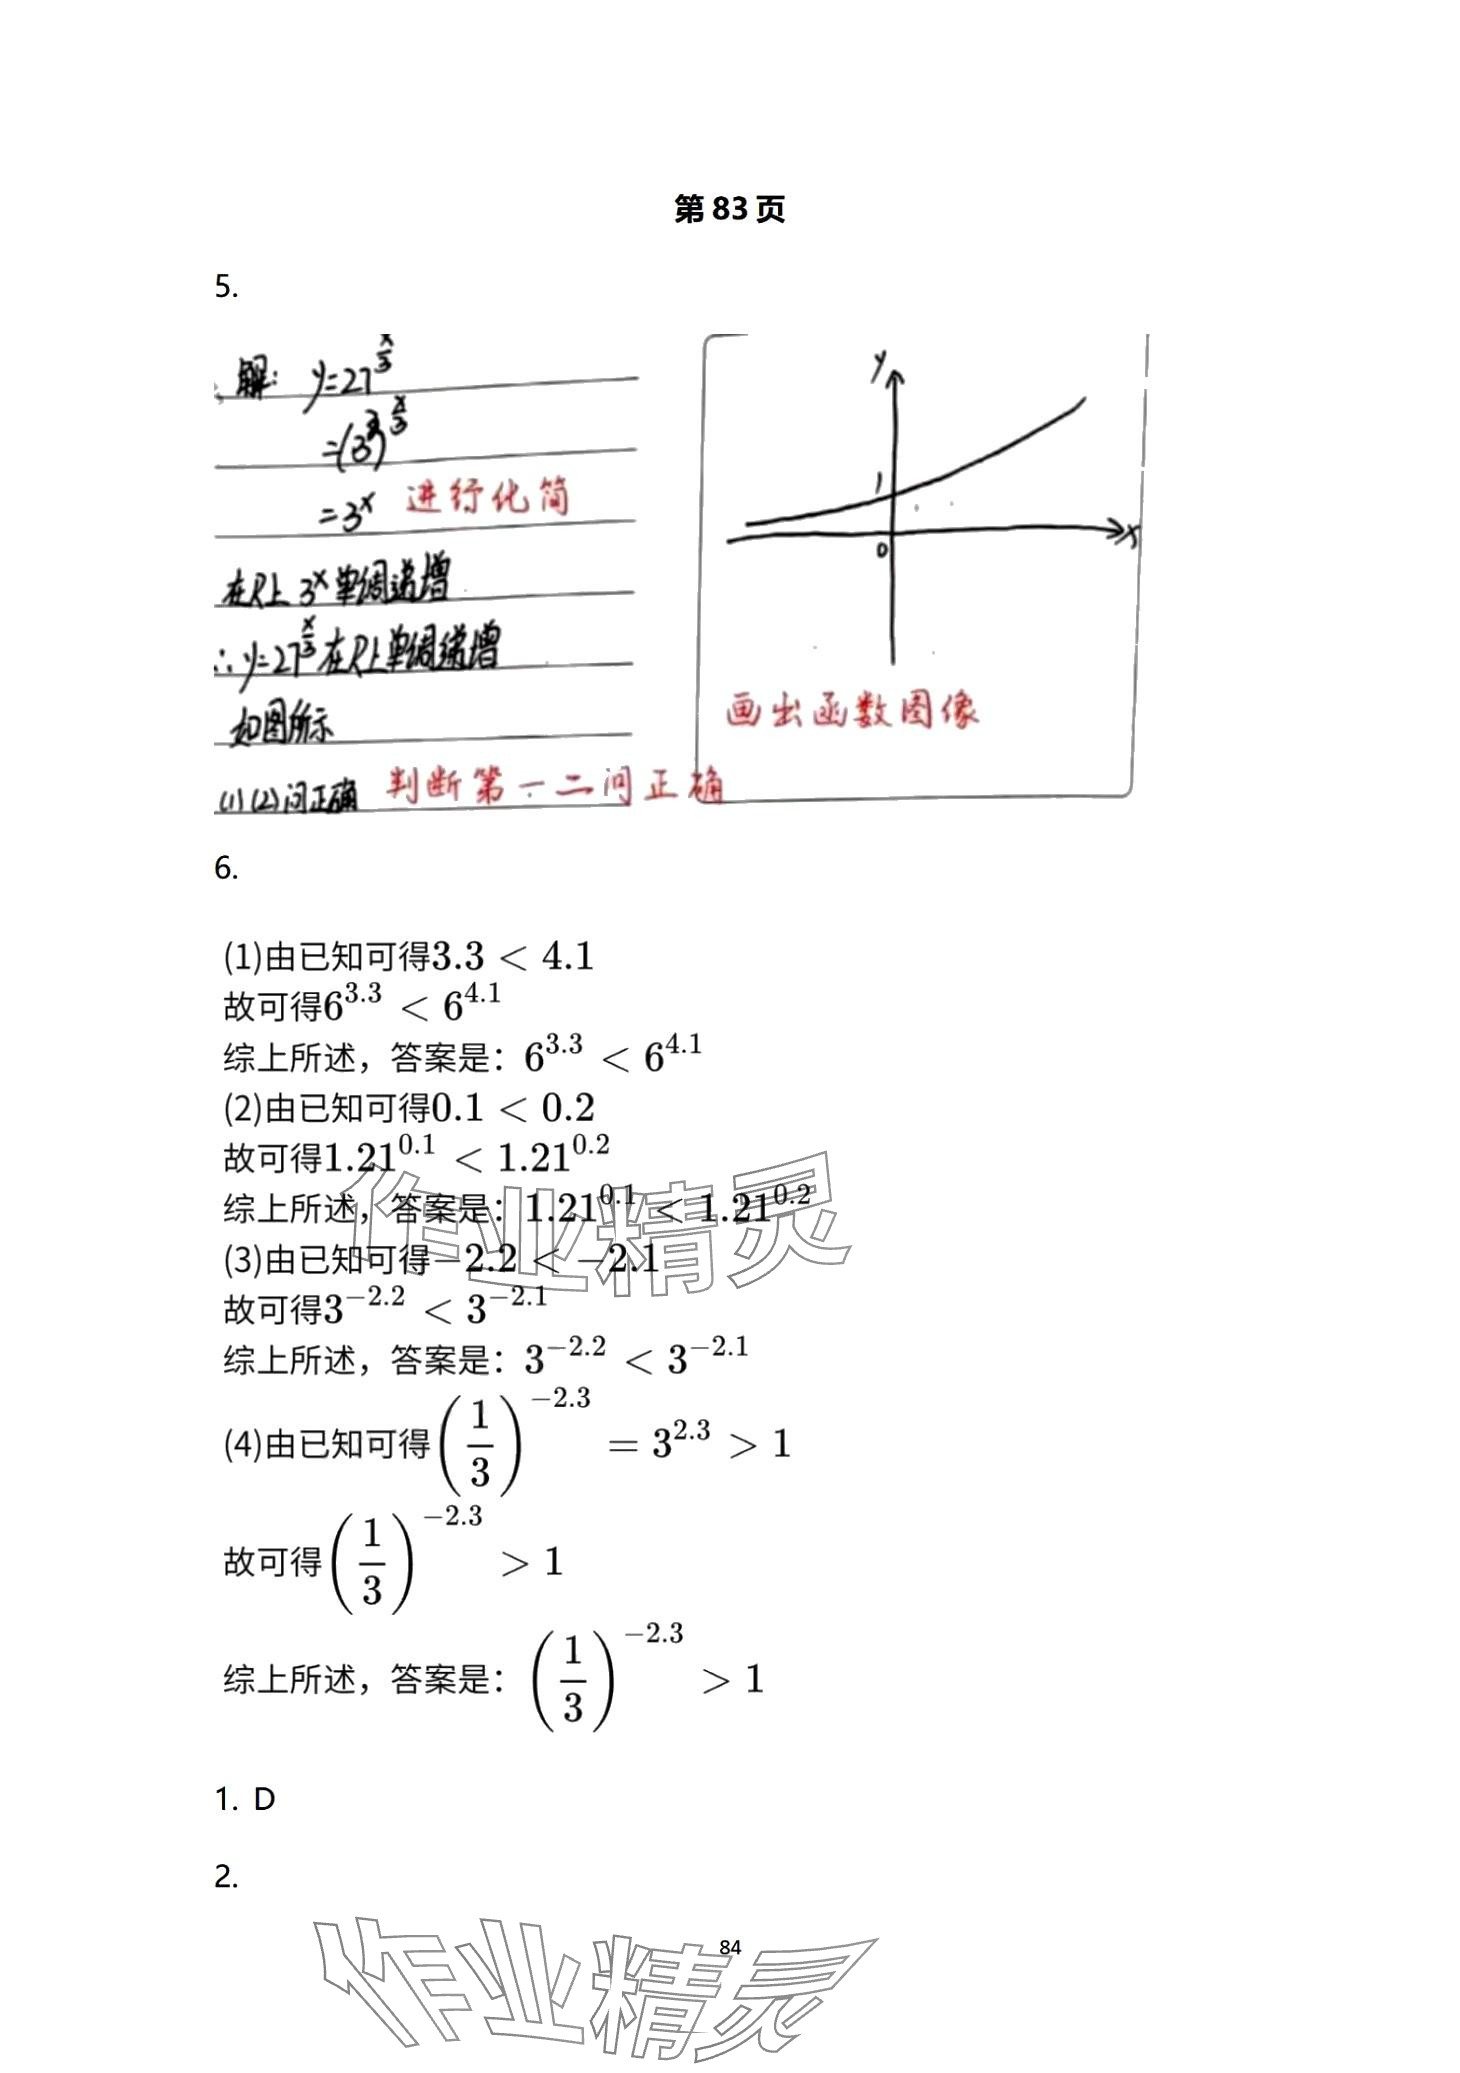 第 83 页
5.
解: y=27^{x/3}
=(3^3)^{x/3}
=3^x 进行化简
在R上 3^x 单调递增
∴y=27^{x/3}在R上单调递增
如图所示
(1)(2)问正确 判断第一二问正确
y
1
0
x
画出函数图像
6.
(1)由已知可得3.3 < 4.1
故可得6^{3.3} < 6^{4.1}
综上所述，答案是：6^{3.3} < 6^{4.1}
(2)由已知可得0.1 < 0.2
故可得1.21^{0.1} < 1.21^{0.2}
综上所述，答案是：1.21^{0.1} < 1.21^{0.2}
(3)由已知可得−2.2 < −2.1
故可得3^{−2.2} < 3^{−2.1}
综上所述，答案是：3^{−2.2} < 3^{−2.1}
(4)由已知可得(1/3)^{−2.3} = 3^{2.3} > 1
故可得(1/3)^{−2.3} > 1
综上所述，答案是：(1/3)^{−2.3} > 1
作业精灵
1. D
2.
84
作业精灵